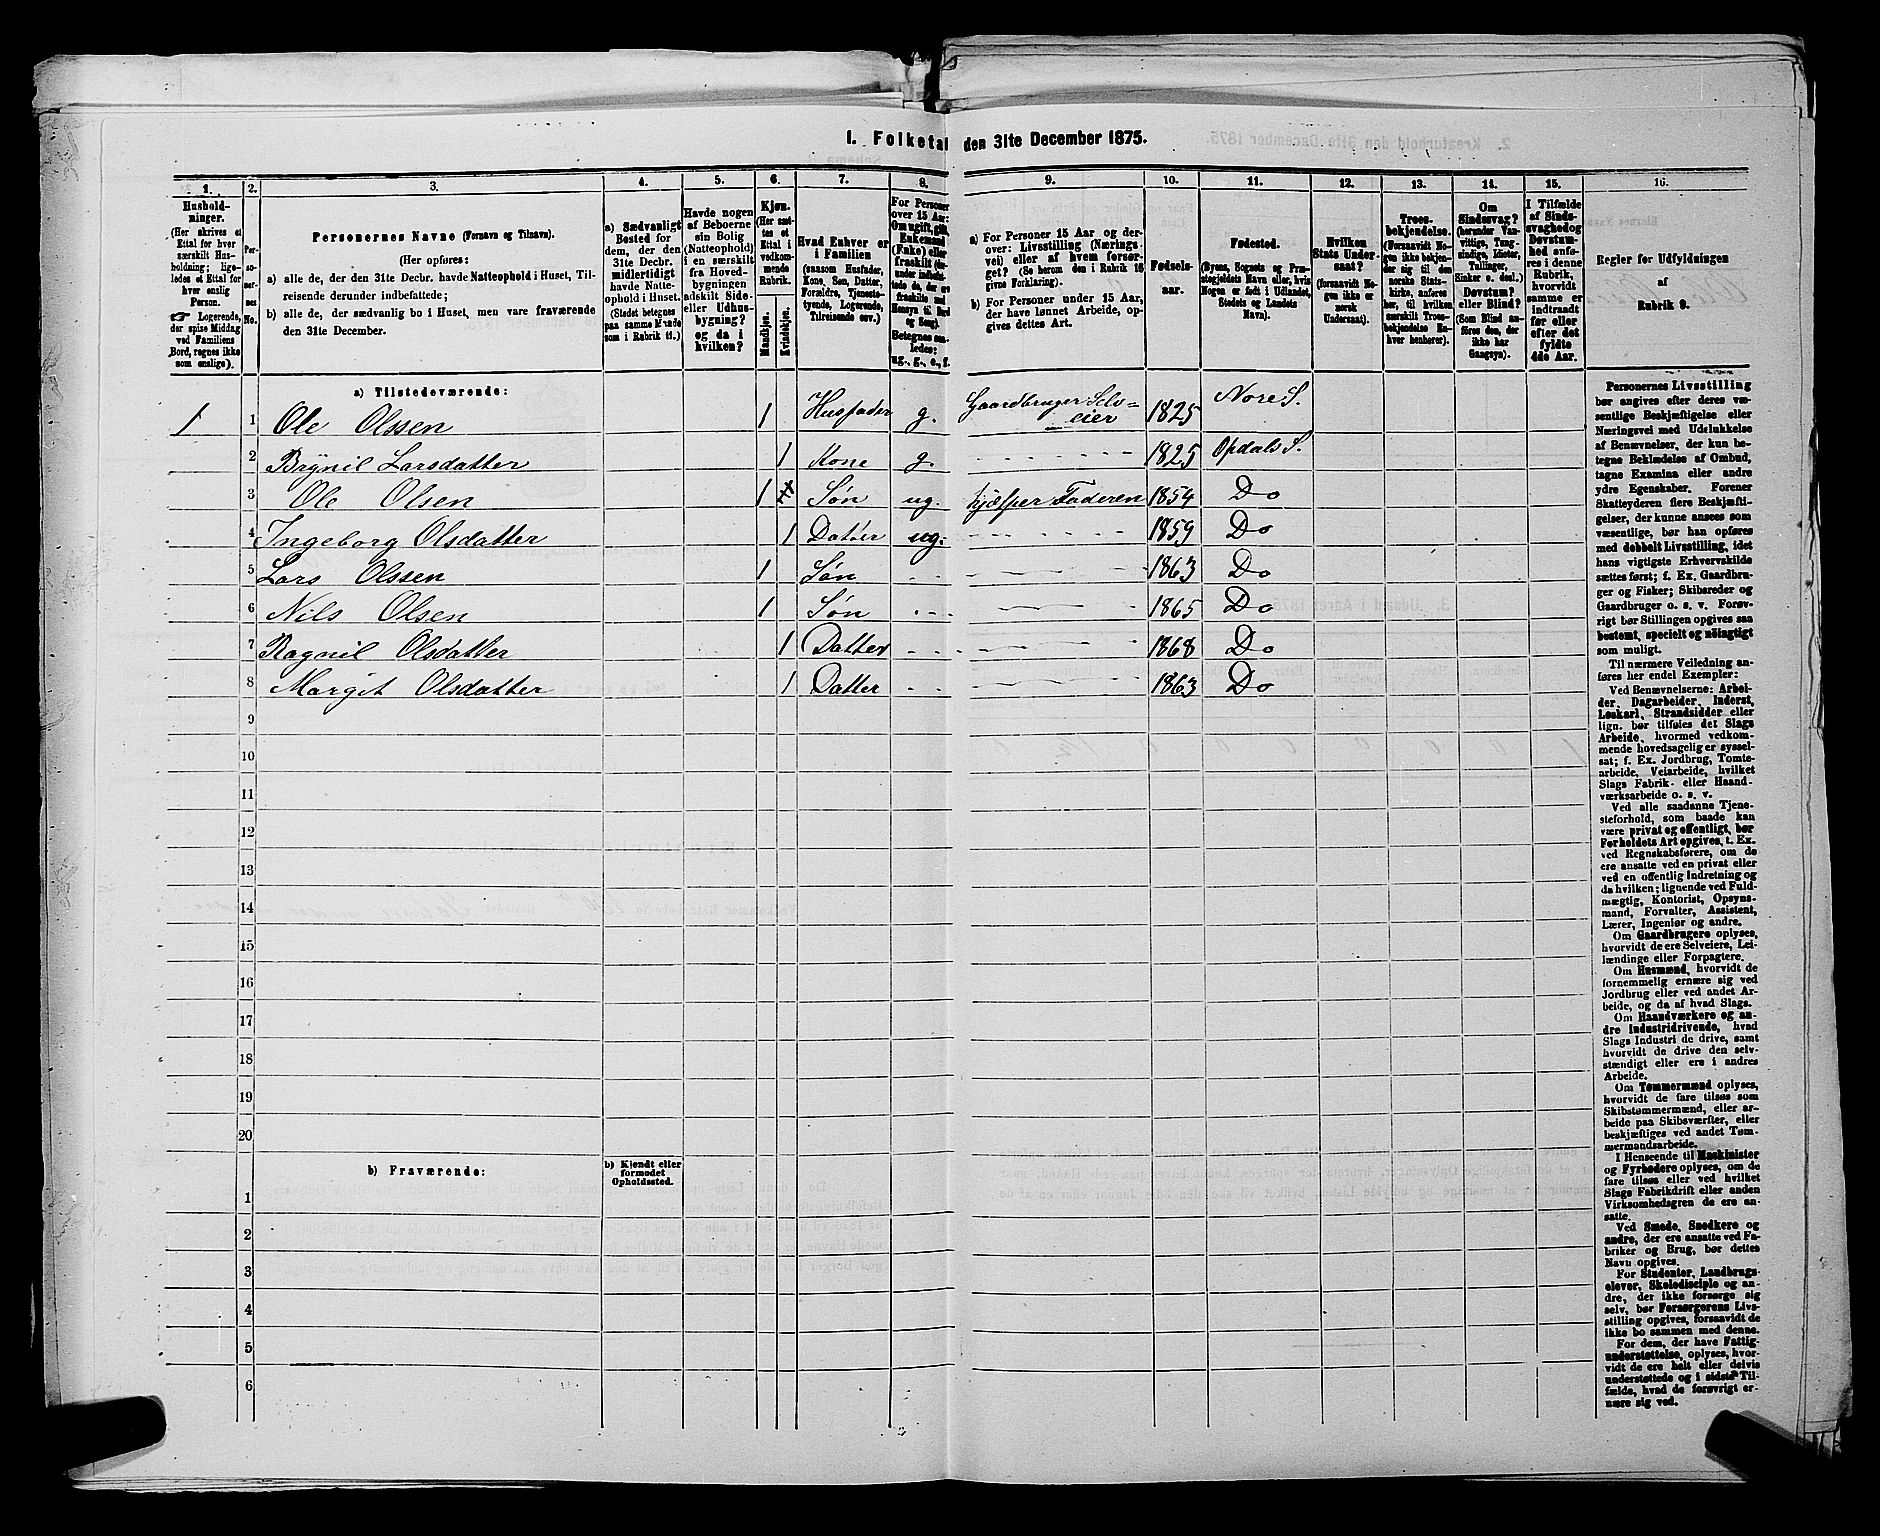 1. Folketal den 31te December 1875.
1. 2. 3. 4. 5. 6. 7. 8. 9. 10. 11. 12. 13. 14. 15. 16.
Hushold-
ninger.
(Her skrives et
Ettal for hver
særskilt Hus-
holdning; lige-
ledes et Ettal for
hver enslig
Person.
☛ Logerende,
der spise Middag
ved Familiens
Bord, regnes ikke
som enslige).
Per-
so-
ner-
nes
No.
Personernes Navne (Fornavn og Tilnavn).
(Her opføres:
a) alle de, der den 31te Decbr. havde Natteophold i Huset, Til-
reisende derunder indbefattede;
b) alle de, der sædvanlig bo i Huset, men vare fraværende
den 31te December.
a) Sædvanligt
Bosted for
dem, der den
31te Decbr.
midlertidigt
havde Natte-
ophold i Huset.
(Stedet betegnes
paa samme Maade
som i Rubrik 11.)
Havde nogen
af Beboerne
sin Bolig
(Natteophold)
i en særskilt
fra Hoved-
bygningen
adskilt Side-
eller Udhus-
bygning?
og da i
hvilken?
Kjøn.
(Her sæt-
tes et
Ettal i
vedkom-
mende
Rubrik.
Mandkjøn.
Kvindekjøn.
Hvad Enhver er
i Familien
(saasom Husfader,
Kone, Søn, Datter,
Forældre, Tjeneste-
tyende, Logerende,
Tilreisende osv.)
For Personer
over 15 Aar:
Om ugift, gift,
Enkemand
(Enke) eller
fraskilt
Betegnes saa-
ledes:
ug., g., e., f.
a) For Personer 15 Aar og der-
over: Livsstilling (Nærings-
vei) eller af hvem forsør-
get? (Se herom den i Rubrik 16
givne Forklaring).
b) For Personer under 15 Aar,
der have lønnet Arbeide, op-
gives dettes Art.
Fødsels-
aar.
Fødested.
(Byens, Sognets og Præ-
stegjeldets Navn eller, hvis
Nogen er født i Udlandet,
Stedets og Landets
Navn).
Hvilken
Stats Under-
saat?
(forsaavidt No-
gen ikke er
norsk
Undersaat).
Troes-
bekjendelse.
(Forsaavidt No-
gen ikke bekjen-
der sig til den
norske Stats-
kirke, anføres
her, til hvilken
særskilt Troes-
bekjendelse En-
hver henhører).
Om
Sindssvag?
(herunder Van-
vittige, Tung-
sindige, Idioter,
Tullinger,
Sinker o. desl.)
Døvstum?
eller Blind?
(Som Blind an-
føres den, der
ikke har
Gangsyn).
I Tilfælde
af Sinds-
svaghed og
Døvstum-
hed anfø-
res i denne
Rubrik,
hvorvidt
samme er
indtraadt
før eller
efter det
fyldte
4de Aar.
Regler for Udfyldningen
af
Rubrik 9.
a) Tilstedeværende:
1 1 Ole Olssen 1 Husfader g. Gaardbruger Selv=eier 1825 Nore S.
2 Brÿnil Larsdatter 1 Kone g. 1825 Opdals S.
3 Ole Olsen 1 Søn ug. hjelper Faderen 1854 Do
4 Ingeborg Olsdatter 1 Datter ug. 1859 Do
5 Lars Olssen 1 Søn 1863 Do
6 Nils Olsen 1 Søn 1865 Do
7 Ragnil Olsdatter 1 Datter 1868 Do
8 Margit Olsdatter 1 Datter 1863 Do
9
10
11
12
13
14
15
16
17
18
19
20
b) Fraværende:
b) Kjendt eller
formodet
Opholdssted.
1
2
3
4
5
6
Personernes Livsstilling
bør angives efter deres væ-
sentlige Beskjæftigelse eller
Næringsvei med Udelukkelse
af Benævnelser, der kun be-
tegne Beklædelse af Ombud,
tagne Examina eller andre
ydre Egenskaber. Forener
Skatteyderen flere Beskjæfti-
gelser, der kunne ansees som
væsentlige, bør han opføres
med dobbelt Livsstilling, idet
hans vigtigste Erhvervskilde
sættes først; f. Ex. Gaardbru-
ger og Fisker; Skibsreder og
Gaardbruger o. s. v. Forøv-
rigt bør Stillingen opgives saa
bestemt, specielt og nøiagtigt
som muligt.
Til nærmere Veiledning an-
føres her endel Exempler:
Ved Benævnelserne: Arbei-
der, Dagarbeider, Inderst,
Løskarl, Strandsidder eller
lign. bør tilføies det Slags
Arbeide, hvormed vedkom-
mende hovedsagelig er syssel-
sat; f. Ex. Jordbrug, Tomte-
arbeide, Veiarbeide, hvilket
Slags Fabrik- eller Haand-
værksarbeide o. s. v.
Ved alle saadanne Tjene-
steforhold, som baade kan
være privat og offentligt, bør
Forholdets Art opgives, t. Ex.
ved Regnskabsførere, om de
ere ansatte ved en privat eller
ved en offentlig Indretning og
da hvilken; lignende ved Fuld-
mægtig, Kontorist, Opsyns-
mand, Forvalter, Assistent,
Lærer, Ingeniør og andre.
Om Gaardbrugere oplyses,
hvorvidt de ere Selveiere, Lei-
lændinge eller Forpagtere.
Om Husmænd, hvorvidt de
fornemmelig ernære sig ved
Jordbrug eller ved andet Ar-
beide, og da af hvad Slags.
Om Haandværkere og an-
dre Industridrivende, hvad
Slags Industri de drive, samt
hvorvidt de drive den selv-
stændigt eller ere i andres
Arbeide.
Om Tømmermænd oplyses,
hvorvidt de fare tilsøs som
Skibstømmermænd, eller ar-
beide paa Skibsværfter, eller
beskjæftiges ved andet Tøm-
mermandsarbeide.
I Henseende til Maskinister
og Fyrbødere oplyses, om de
fare tilsøs eller ved hvilket
Slags Fabrikdrift eller anden
Virksomhedsgren de ere an-
satte.
Ved Smede, Snedkere og
andre, der ere ansatte ved Fa-
briker og Brug, bør dettes
Navn opgives.
For Studenter, Landbrugs-
elever, Skoledisciple og an-
dre, der ikke forsørge sig
selv, bør Forsørgerens Livs-
stilling opgives, forsaavidt de
ikke bo sammen med denne.
For dem, der have Fattig-
understøttelse, oplyses, hvor-
vidt de ere helt eller delvis
understøttede og i sidste Til-
fælde, hvad de forøvrigt er-
nære sig ved.